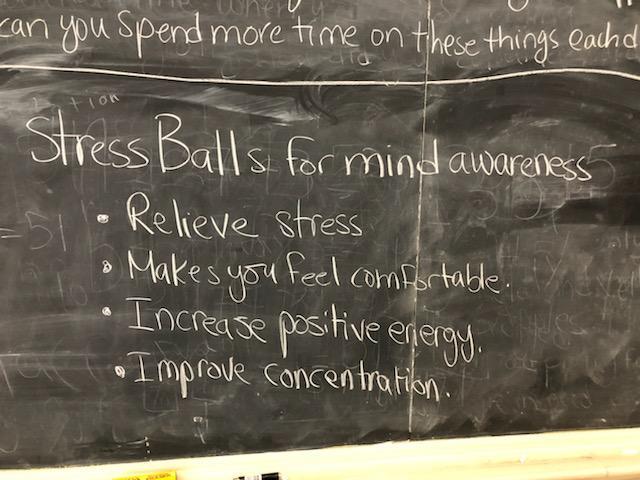 can you Spend more time on these things each d
Stress Balls for mind awareness
• Relieve stress
• Makes you feel comfortable.
• Increase positive energy.
• Improve concentration.